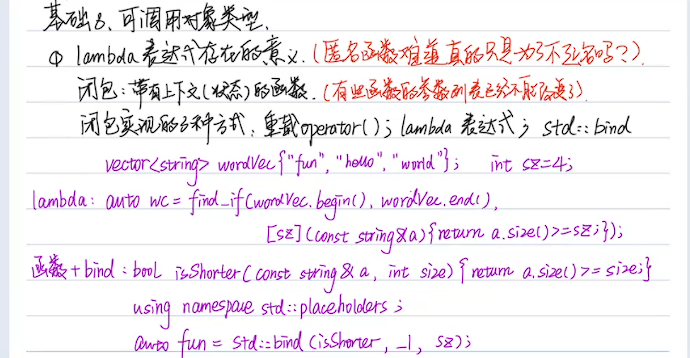 基础8、可调用对象类型.
① lambda表达式存在的意义.(匿名函数难道真的只是为了不取名吗?)
闭包:带有上下文(状态)的函数.(有些函数的参数列表已经不能改变了)
闭包实现的3种方式:重载operator(); lambda表达式; std::bind
vector<string> wordVec{"fun", "hello", "world"}; int sz=4;
lambda: auto wc = find_if(wordVec.begin(), wordVec.end(),
[sz](const string& a){return a.size()>=sz;});
函数+bind: bool isShorter(const string& a, int size){return a.size()>=size;}
using namespace std::placeholders;
auto fun = std::bind(isShorter, _1, sz);